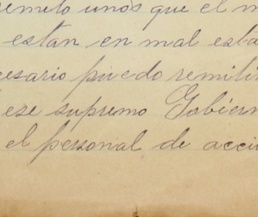 remito unos que el m
están en mal esta
cesario puedo remitir
ese supremo Gobiern
el personal de acci